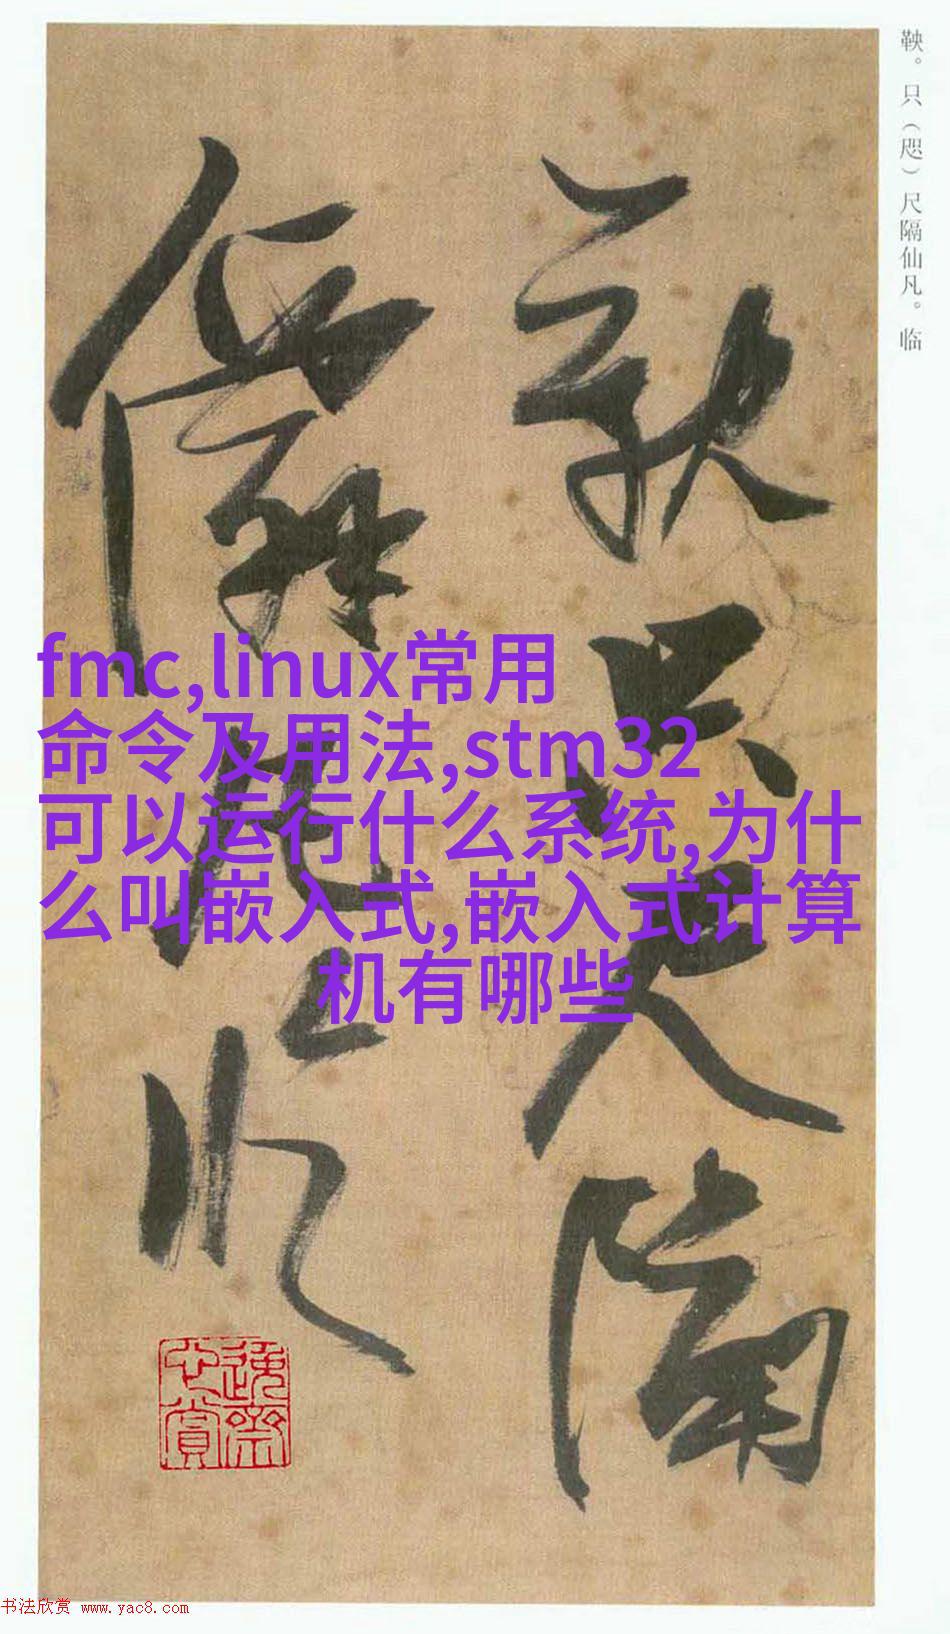 鞅。只（咫）尺隔仙凡。临
鞅只尺隔
僊凡临
fmc,linux常用
命令及用法,stm32
可以运行什么系统,为什
么叫嵌入式,嵌入式计算
机有哪些
书法欣赏 www.yac8.com